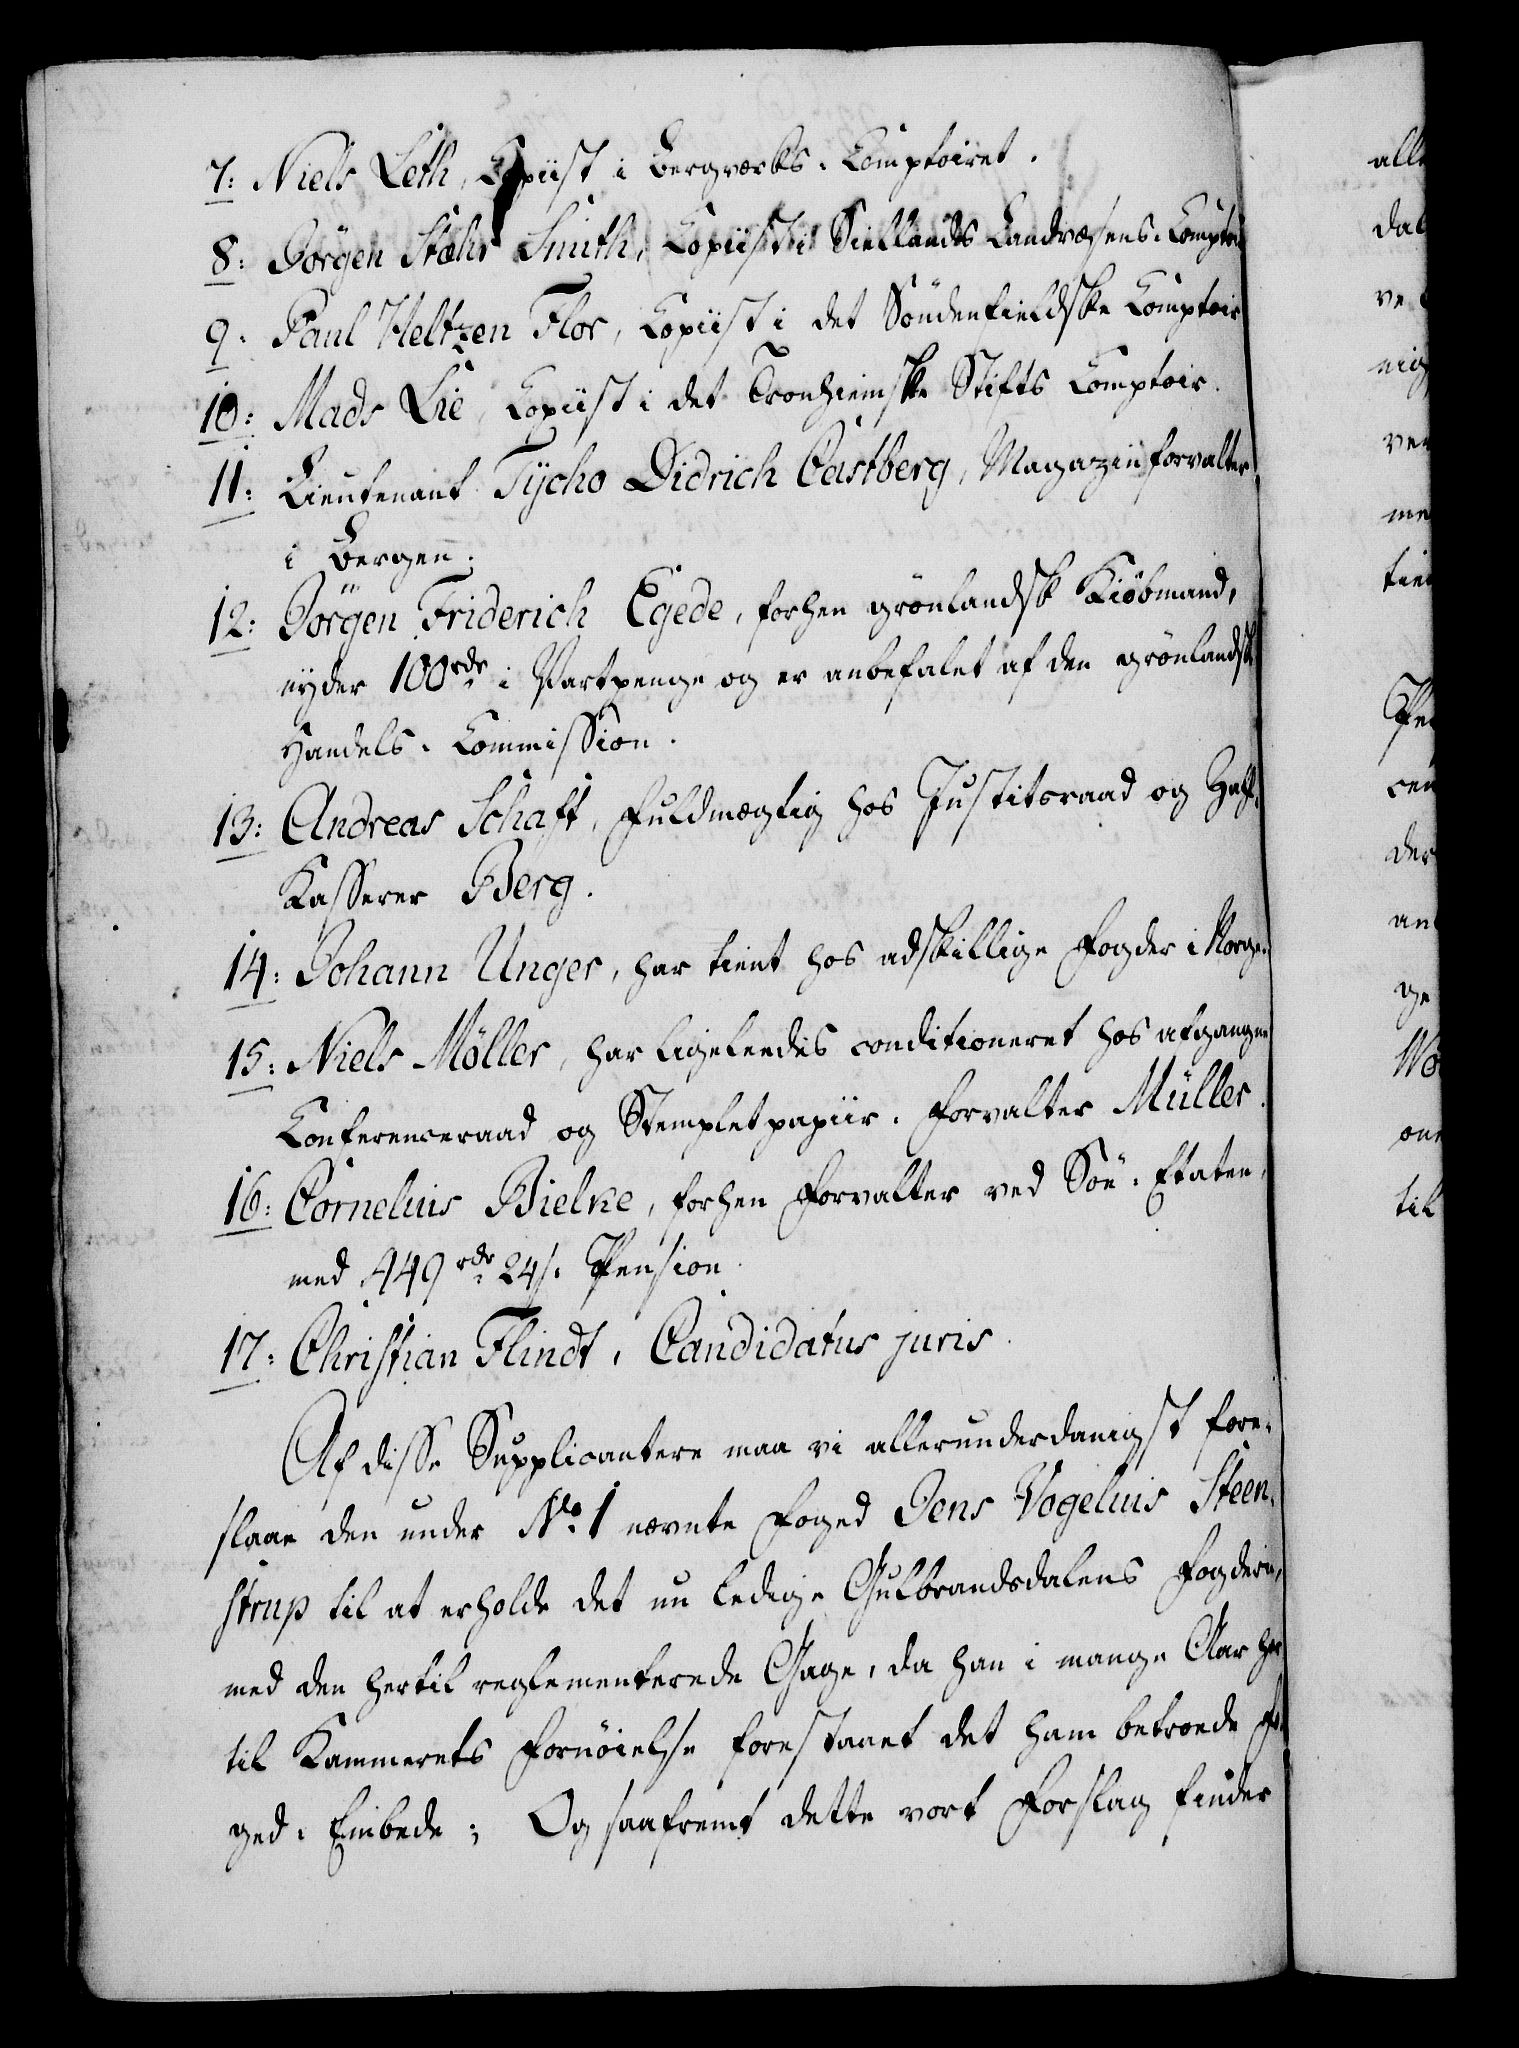 7: Niels Leth, Copiist i Bergværks-Comptoiret.
8: Jörgen Stæhr Smith, Copiist i Siellands Landvæsens-Comptoir
9. Paul Heltzen Flor, Copiist i det Söndenfieldske Comptoir
10: Mads Lie, Copiist i det Tronhiemske Stifts Comptoir.
11: Lieutenant Tÿcho Didrich Castberg, Magazinforvalter
i Bergen.
12: Jörgen Friderich Egede, forhen grönlandsk Kiöbmand,
nyder 100 rdr i Vartpenge og er anbefalet af den grönlandsk
Handels-Commission.
13: Andreas Schaft, Fuldmægtig hos Justitsraad og
Kasserer Berg.
14: Johann Unger, har tient hos adskillige Fogder i Norge.
15: Niels Möller, har ligeleedes conditioneret hos afgangne
Conferenceraad og Stempletpapiir-Forvalter Müller.
16: Cornelius Bielke, forhen Forvalter ved Söe-Etaten,
med 449 rdr 24 s. Pension.
17: Christian Flindt, Candidatus juris.
Af disse Supplicantere maa vi allerunderdanigst fore-
slaae den under No. 1 nævnte Foged Jens Vogelius Steen-
strup til at erholde det nu ledige Gulbrandsdalens Fogderie,
med den hertil reglementerede Gage, da han i mange Aar har
til Kammerets Fornöielse forestaaet det ham betroede Fo-
ged-Embede; Og saafremt dette vort Forslag finder
alle
ve
til